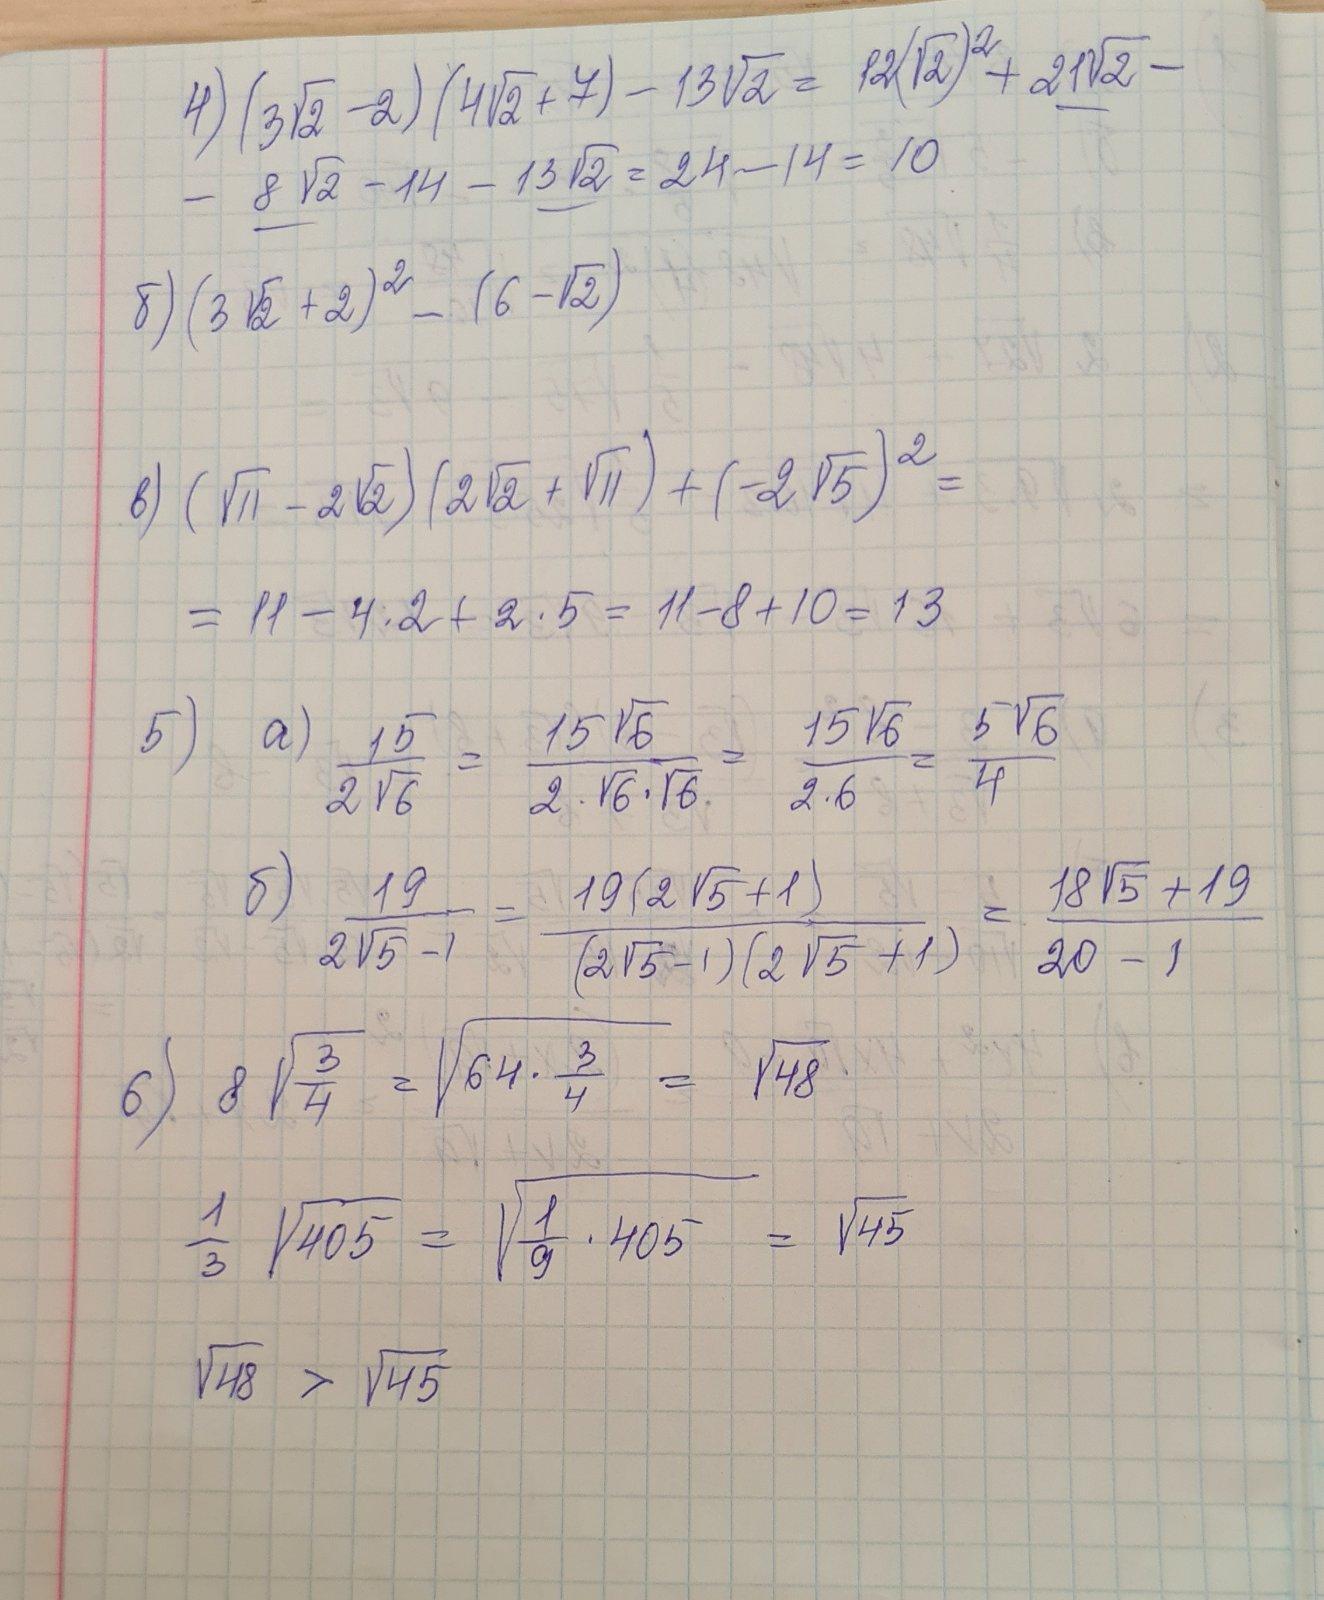 4) (3√2 - 2)(4√2 + 7) - 13√2 = 12(√2)² + 21√2 -
- 8√2 - 14 - 13√2 = 24 - 14 = 10
б) (3√2 + 2)² - (6 - √2)
в) (√11 - 2√2)(2√2 + √11) + (-2√5)² =
= 11 - 4·2 + 2·5 = 11 - 8 + 10 = 13
5) а) 15/(2√6) = 15√6/(2·√6·√6) = 15√6/(2·6) = 5√6/4
б) 19/(2√5 - 1) = 19(2√5 + 1)/((2√5 - 1)(2√5 + 1)) = (18√5 + 19)/(20 - 1)
6) 8√(3/4) = √(64·3/4) = √48
1/3 √405 = √(1/9·405) = √45
√48 > √45